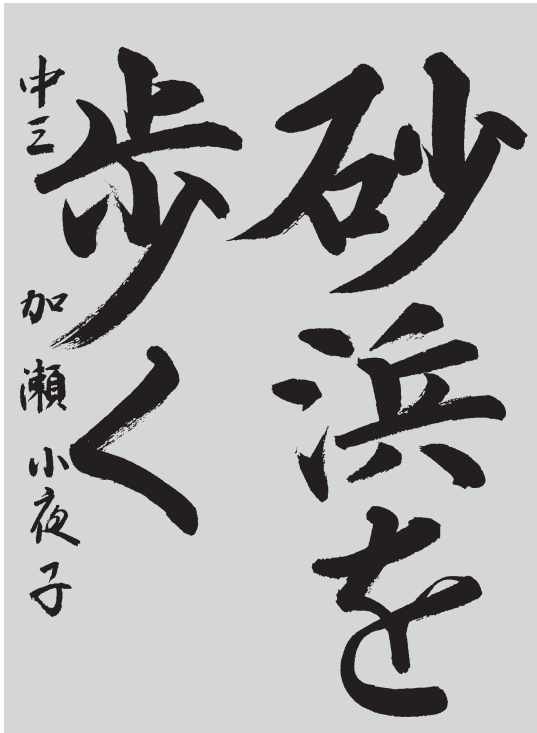 砂浜を
歩く
中三 加瀬小夜子